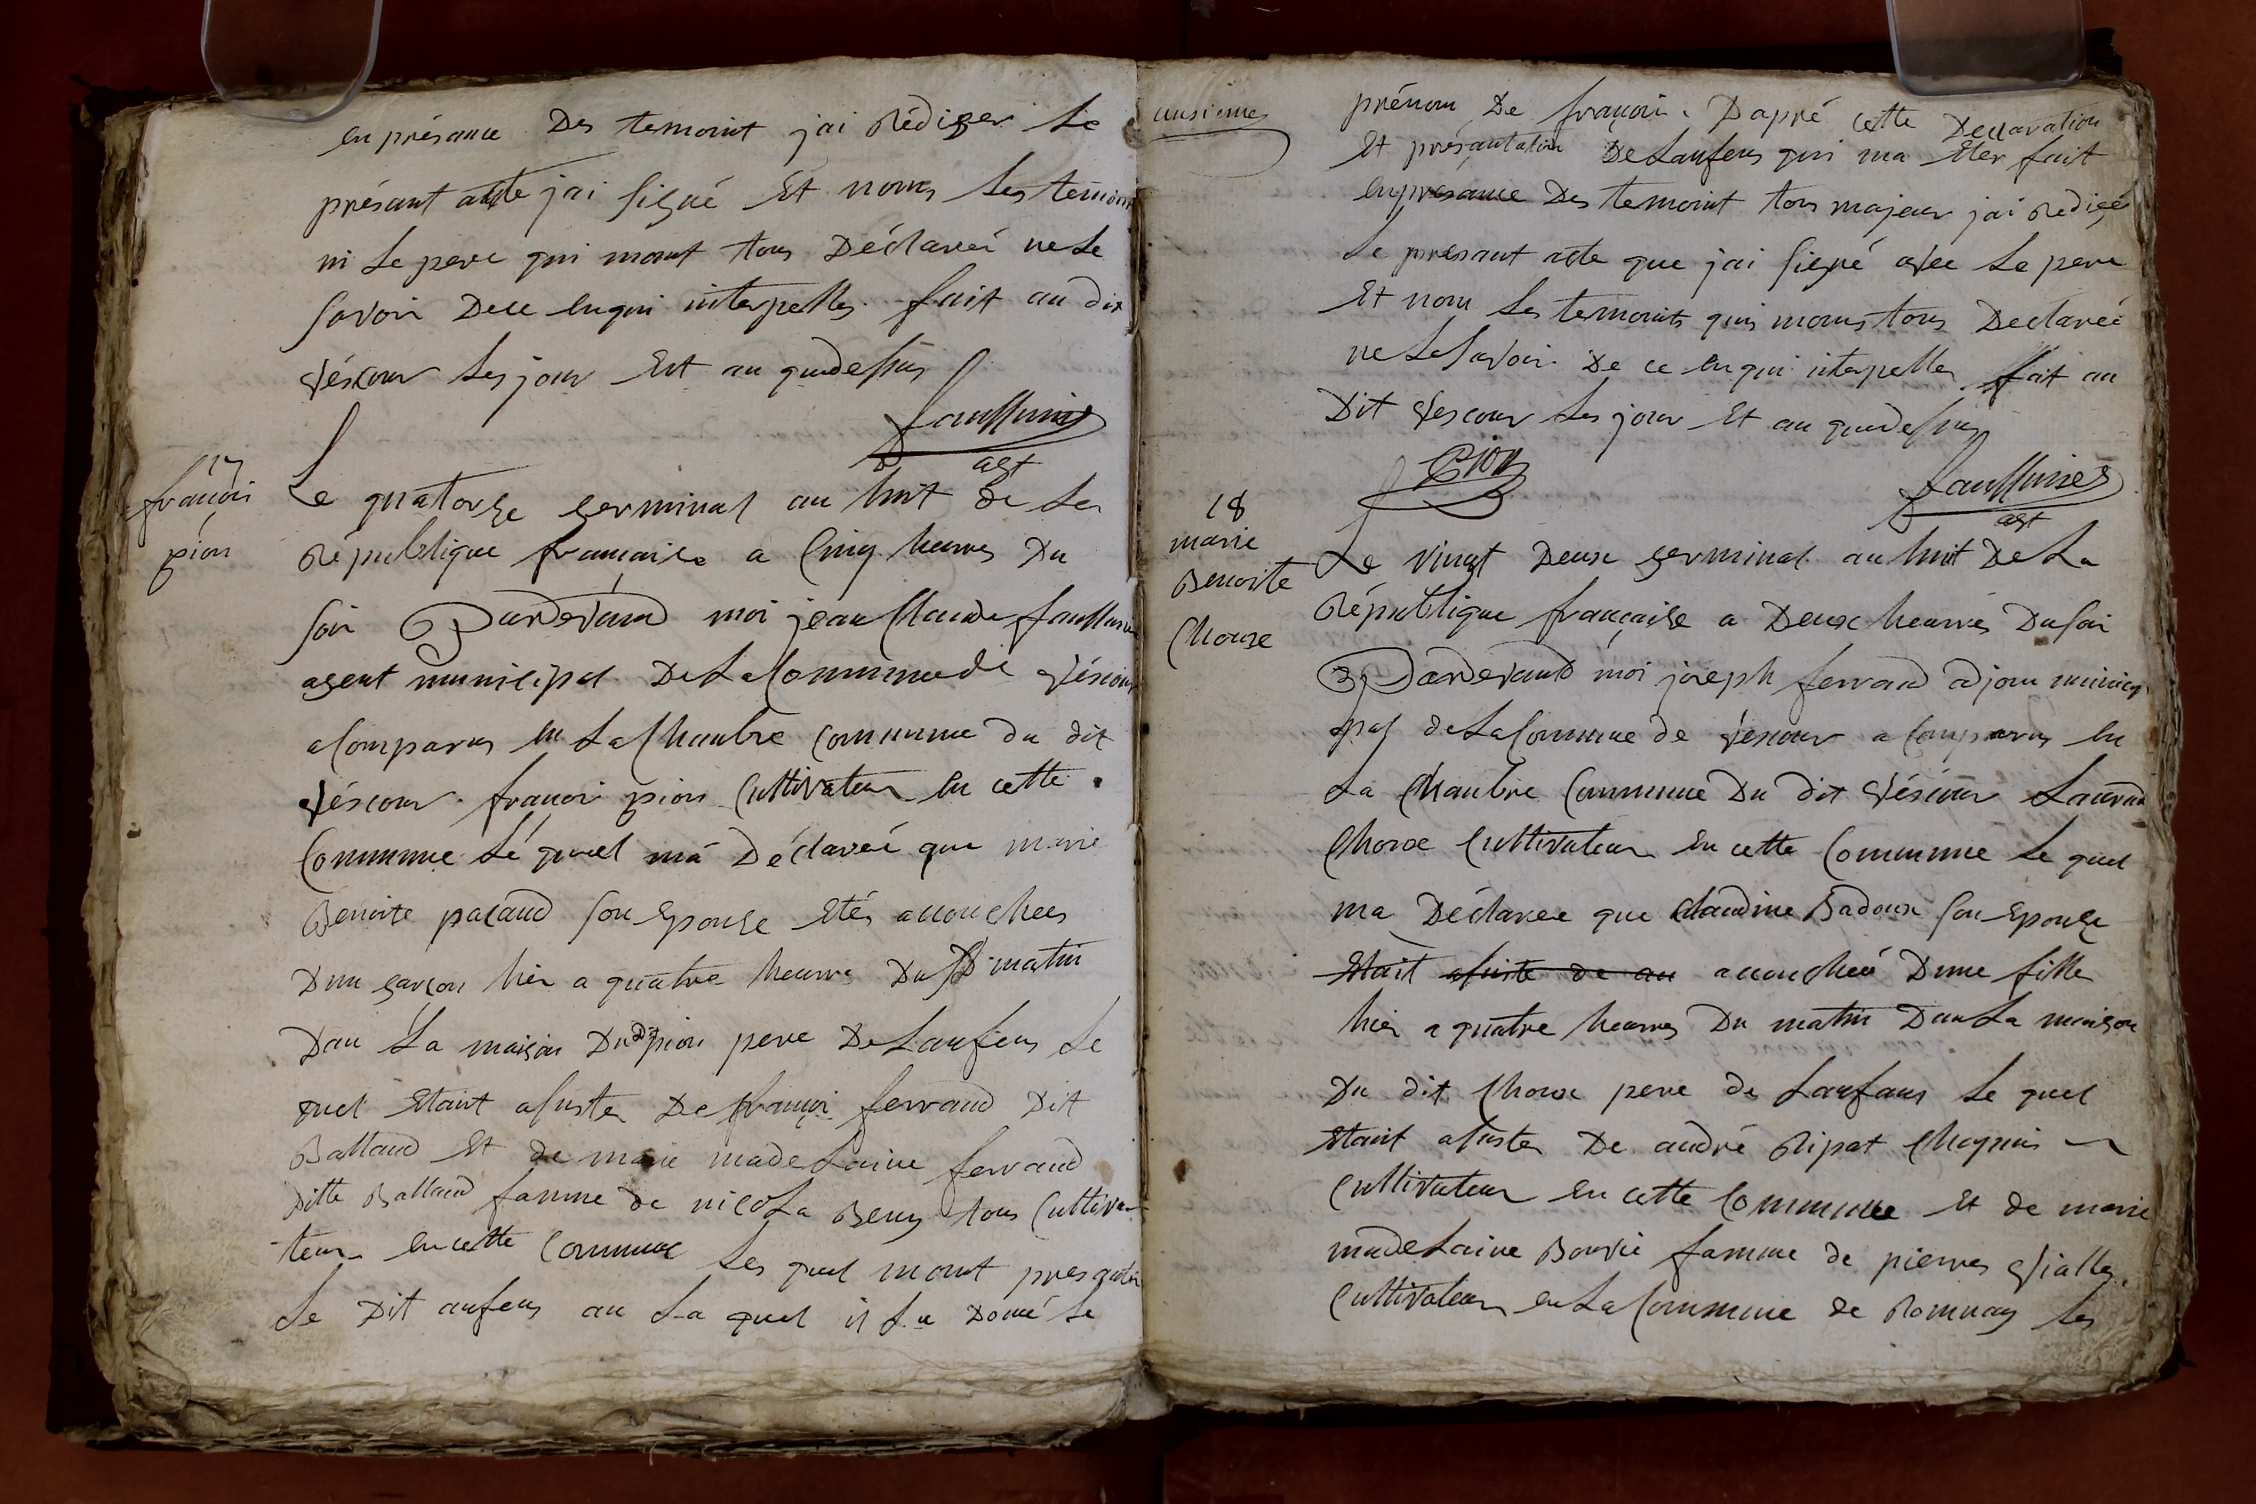 en présance Des temoint jai Rédiger Le
présant acte jai signé Et nom Les temoint
ni Le pere qui mont tous Déclareé ne Le
savoir Dece enqui interpelles. fait au dit
véscour Les jour Et an quedessus
faussurier
agt
17
françoi
pion
Le quatorze germinal an huit de La
République française a Cinq heures Du
soir Pardevand moi jean Claude faussurier
agent municipal De La Commune de véscour
a Comparus en La Chambre Commune du dit
véscour françoi pion Cultivateur en cette
Commune Lé quel ma Déclareé que marie
Benoite pacaud son Epouse Etés accouchees
Dun garçon hier a quatre heurre Du matin
Dan La maison Du dt pion pere De Lanfens Le
quel Etant asiste De françoi ferraud Dit
Balland Et de marie madeLaine ferraud
Ditte Balland famme de nicoLa Beny tous Cultiva-
teur en cette Commune Les quel mont presanté
Le Dit anfens au La quel il La Doné Le
unsieme
prénom De françoi. Dapré cette Declaration
Et présantation DeLanfens qui ma Eter fait
enprésance Des temoint tous majeur jai Redigé
Le présant acte que jai signé avec Le pere
Et nom Les temoints qui mons tous Declareé
ne Le savoir De ce en qui interpelles fait au
Dit véscour Les jour Et an quedessus
Pion
faussurier
agt
18
marie
Benoite
Choux
Le vingt Deux germinal an huit De La
République française a Deux heurres Du soir
Pardevand moi joseph ferraud adjoin munici
pal de La Commune de véscour a Comparus en
La Chambre Commune Du dit véscour Laurand
Choux Cultivateur en cette Commune Le quel
ma Déclaree que Claudine Badoux son Epouse
Etait asiste de au accouchée Dune fille
hier a quatre heurres Du matin Dan La maison
Du dit Choux pere de Lanfans Le quel
Etant asiste De andré Ripat Chognis
Cultivateur en cette Commune Et de marie
madeLaine Bouvié famme de pierres vialle
Cultivateur en La Commune de Romnay Les